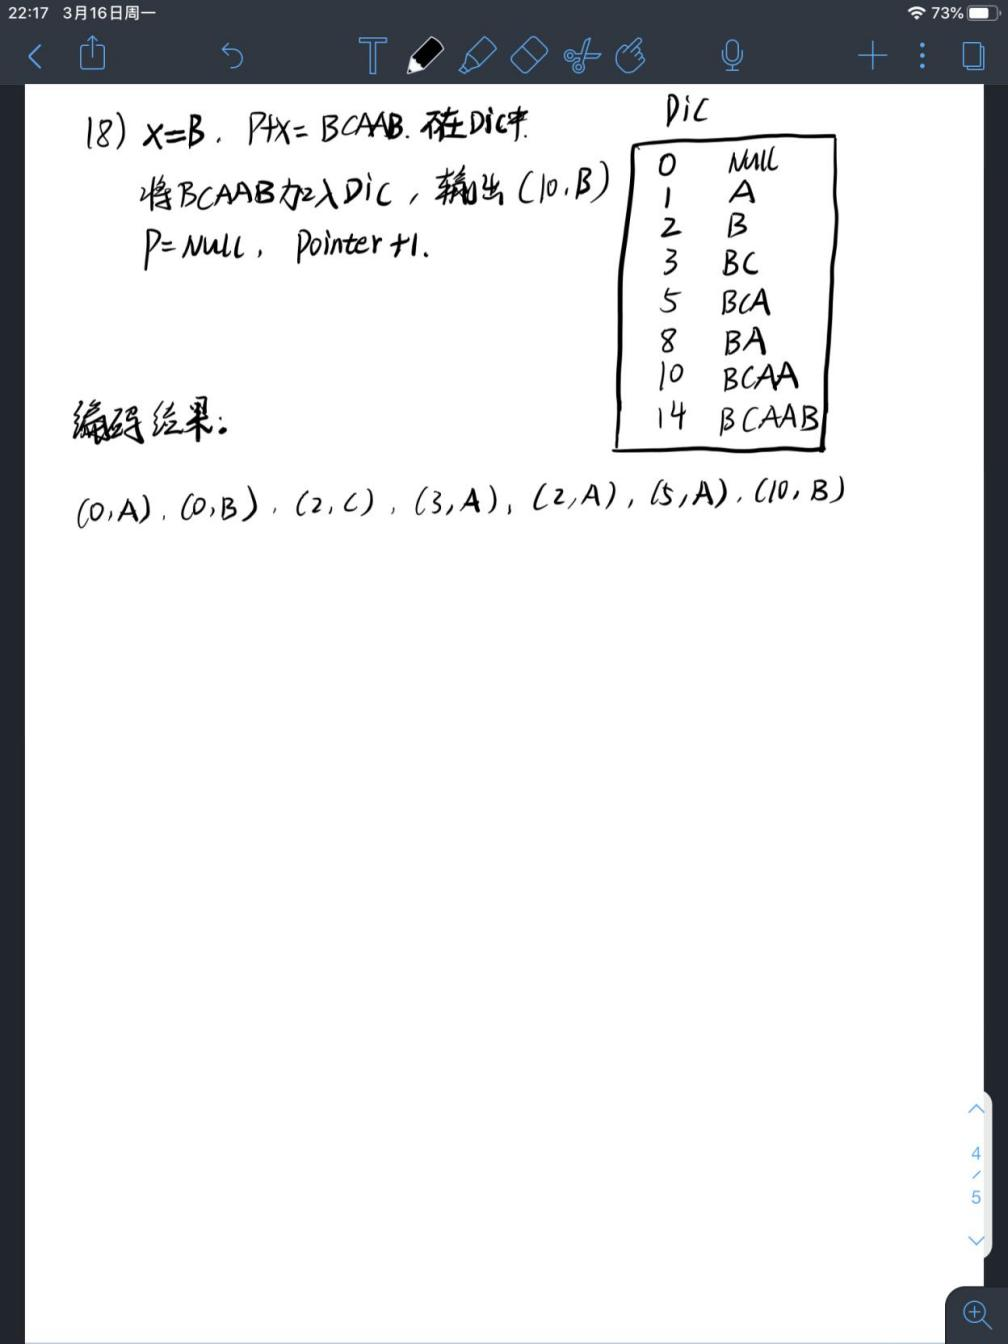 22:17 3月16日周一
73%
18) x=B. P+x= BCAAB. 不在Dic中.
将BCAAB加入Dic, 输出(10,B)
P=Null, Pointer+1.
Dic
0 Null
1 A
2 B
3 BC
5 BCA
8 BA
10 BCAA
14 BCAAB
编码结果:
(0,A), (0,B), (2,C), (3,A), (2,A), (5,A), (10,B)
4
/
5